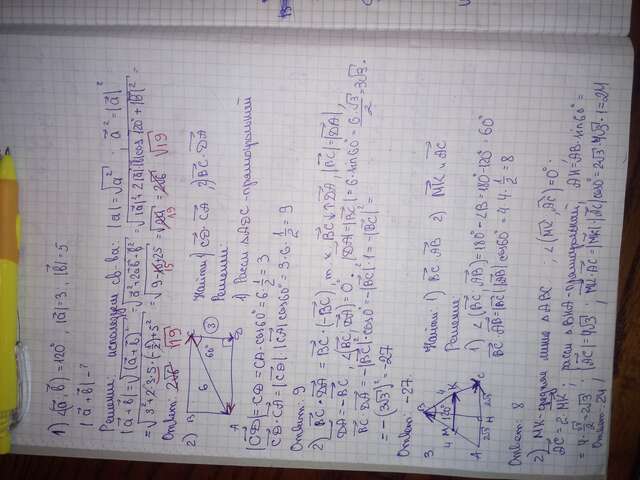 1) a, b = 120°, |a| = 3, |b| = 5
|a + b| - ?
Решение: используем св-ва: |a| = √a², a² = |a|²
|a + b| = √(a + b)² = √a² + 2ab + b² = √|a|² + 2|a||b|cos 120° + |b|² =
= √3² + 2·3·5·(-1/2) + 5² = √9 - 15 + 25 = √19
Ответ: √19
2) B C
Найти: 1) CD · CA 2) BC · DA
Решение:
6 60° 3
A D
1) Рассм. △ADC - прямоугольный
|CD| = CD = CA · cos 60° = 6 · 1/2 = 3
CD · CA = |CD| · |CA| cos 60° = 3 · 6 · 1/2 = 9
Ответ: 9
2) BC · DA = BC · (-BC), т. к. BC ↑↓ DA, |BC| = |DA|,
DA = -BC, ∠(BC, DA) = 0°, |DA| = |BC| = 6 · sin 60° = 6 · √3/2 = 3√3.
BC · DA = -|BC|² · cos 0° = -|BC|² · 1 = -|BC|² =
= -(3√3)² = -27
Ответ: -27.
3 B
4 M 120° 4 K
A 2√3 H 2√3 C
Найти: 1) BC · AB 2) MK и AC
Решение
1) ∠(BC, AB) = 180° - ∠B = 180° - 120° = 60°
BC · AB = |BC| |AB| cos 60° = 4 · 4 · 1/2 = 8
Ответ: 8
2) MK - средняя линия △ABC ; ∠(MK, AC) = 0°.
AC = 2 · MK ; рассм △BHA - прямоугольный, AH = AB · sin 60° =
= 4 · √3/2 = 2√3 ; |AC| = 4√3 ; MK · AC = |MK| |AC| cos 0° = 2√3 · 4√3 · 1 = 24
Ответ: 24